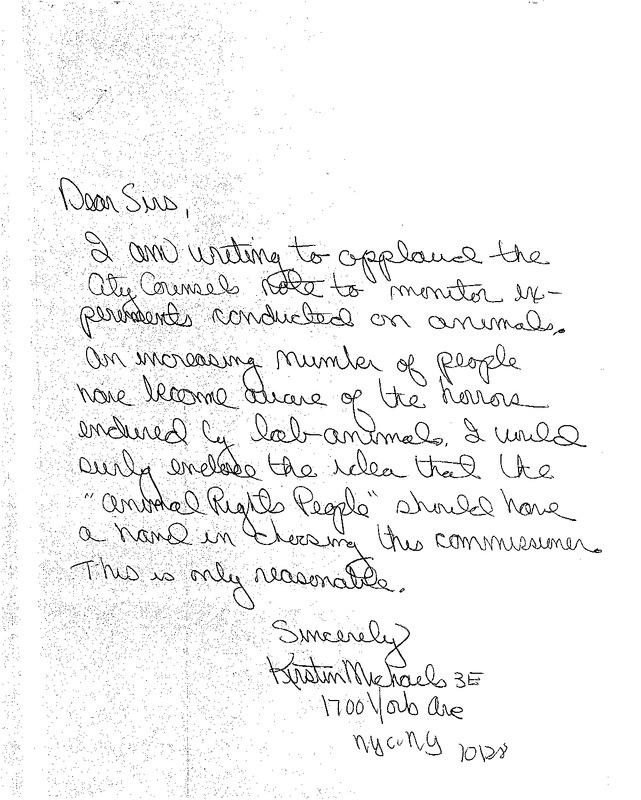 Dear Sirs,
I am writing to applaud the
City Counsels vote to monitor ex-
periments conducted on animals.
An increasing number of people
have become aware of the horrors
endured by lab-animals. I would
surly endose the idea that the
"Animal Rights People" should have
a hand in choosing this commissioner.
This is only reasonable.
Sincerely
Kirstin Michaels 3E
1700 York Ave
NYC. NY 10128